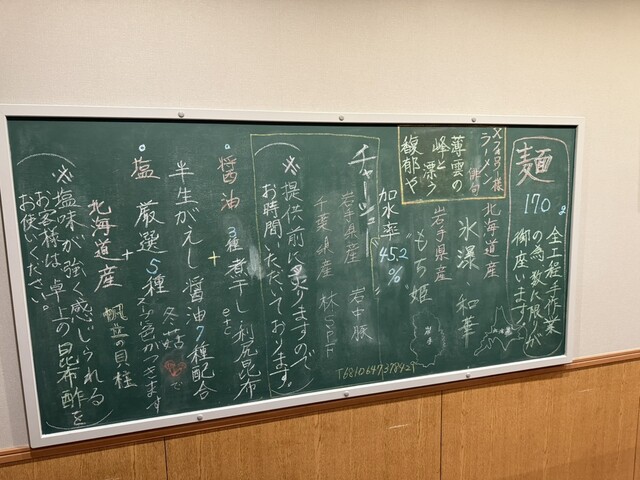 麺
170g
全工程手作業
の為、数に限りが
御座います
北海道産
氷瀑・和華
岩手県産
もち姫
岩手
加水率
45.2
%
ラーメン
俳句
薄雲の
峰と漂う
馥郁や
チャーシュー
岩手県産 岩中豚
千葉県産 林SPF
※提供前に炙りますので
お時間いただいております。
醤油
3種煮干し利尻昆布
etc
+
半生がえし 醤油7種配合
塩 厳選5種
冬菇で
+
北海道産
帆立の貝柱
※塩味が強く感じられる
お客様は、卓上の昆布酢を
お使いください。